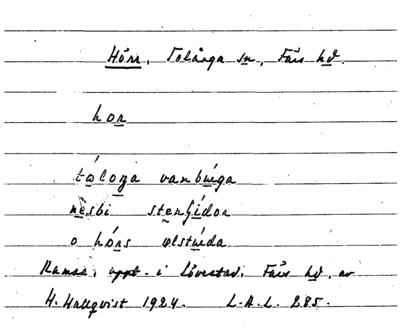 Hörr, Tolånga sn, Färs hd.
hon
tǻloga vanbúga
nèsbi stenɧídon
o hó́ns ølstúda
Ramsa, uppt. i Lövestad, Färs hd, av
H. Hallqvist 1924. L.A.L. 285.